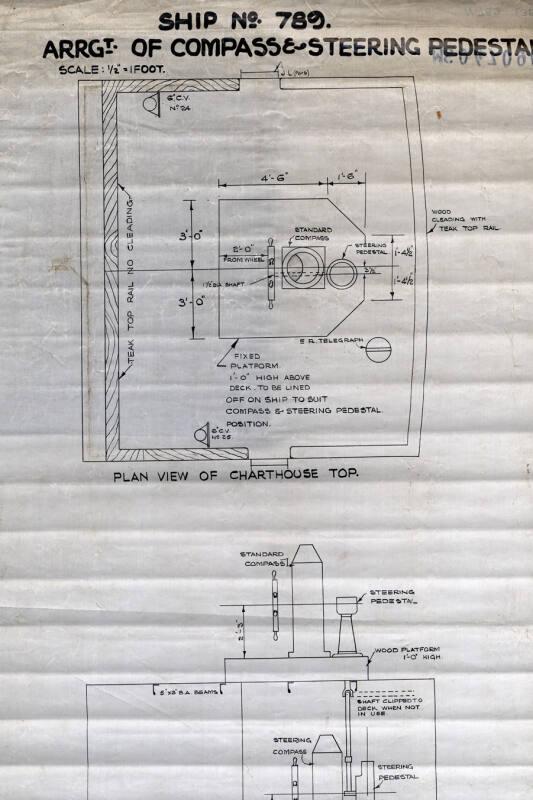 SHIP No. 789.
ARRGT. OF COMPASS & STEERING PEDESTA
SCALE: 1/2" = 1 FOOT.
6" C.V.
No. 24.
4'-6"
1'-6"
WOOD
CLEADING WITH
TEAK TOP RAIL.
TEAK TOP RAIL NO CLEADING
3'-0"
2'-0"
FROM WHEEL
STANDARD
COMPASS
STEERING
PEDESTAL
1'-4½"
3½
1½" DIA. SHAFT
3'-0"
1'-4½"
E.R. TELEGRAPH
FIXED
PLATFORM
1'-0" HIGH ABOVE
DECK. TO BE LINED
OFF ON SHIP TO SUIT
COMPASS & STEERING PEDESTAL
POSITION.
6" C.V.
No. 25.
PLAN VIEW OF CHARTHOUSE TOP.
STANDARD
COMPASS
STEERING
PEDESTAL
2'-3"
WOOD PLATFORM
1'-0" HIGH
B.A. BEAMS
SHAFT CLIPPED TO
DECK WHEN NOT
IN USE
STEERING
COMPASS
STEERING
PEDESTAL